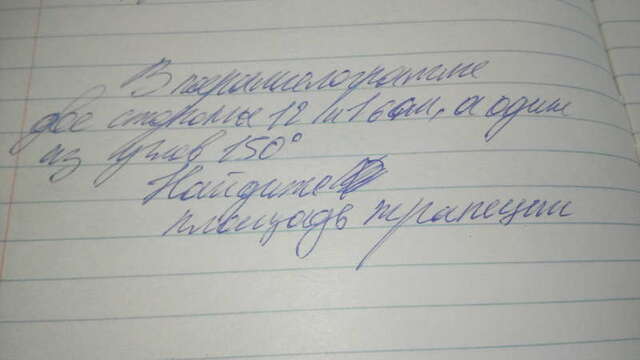 В параллелограмме
две стороны 12 и 16см, а один
из углов 150°
Найдите
площадь трапеции